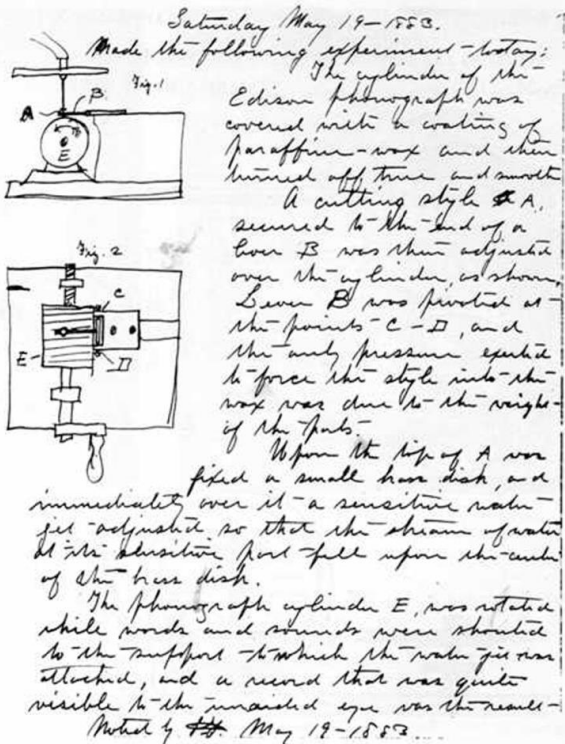 Saturday May 19-1883.
Made the following experiment-today:
Fig. 1
A
B
E
The cylinder of the
Edison phonograph was
covered with a coating of
paraffine-wax and then
turned off true and smooth
A cutting style A,
secured to the end of a
lever B was then adjusted
over the cylinder, as shown.
Lever B was pivoted at
the points C-D, and
the only pressure exerted
to force the style into the
wax was due to the weight
of the parts-
Fig. 2
C
D
E
Upon the top of A was
fixed a small brass disk, and
immediately over it a sensitive water
jet-adjusted so that the stream of water
at its sensitive part fell upon the center
of the brass disk.
The phonograph cylinder E, was rotated
while words and sounds were shouted
to the support to which the water jet was
attached, and a record that was quite
visible to the unaided eye was the result-
Noted by May 19-1883.